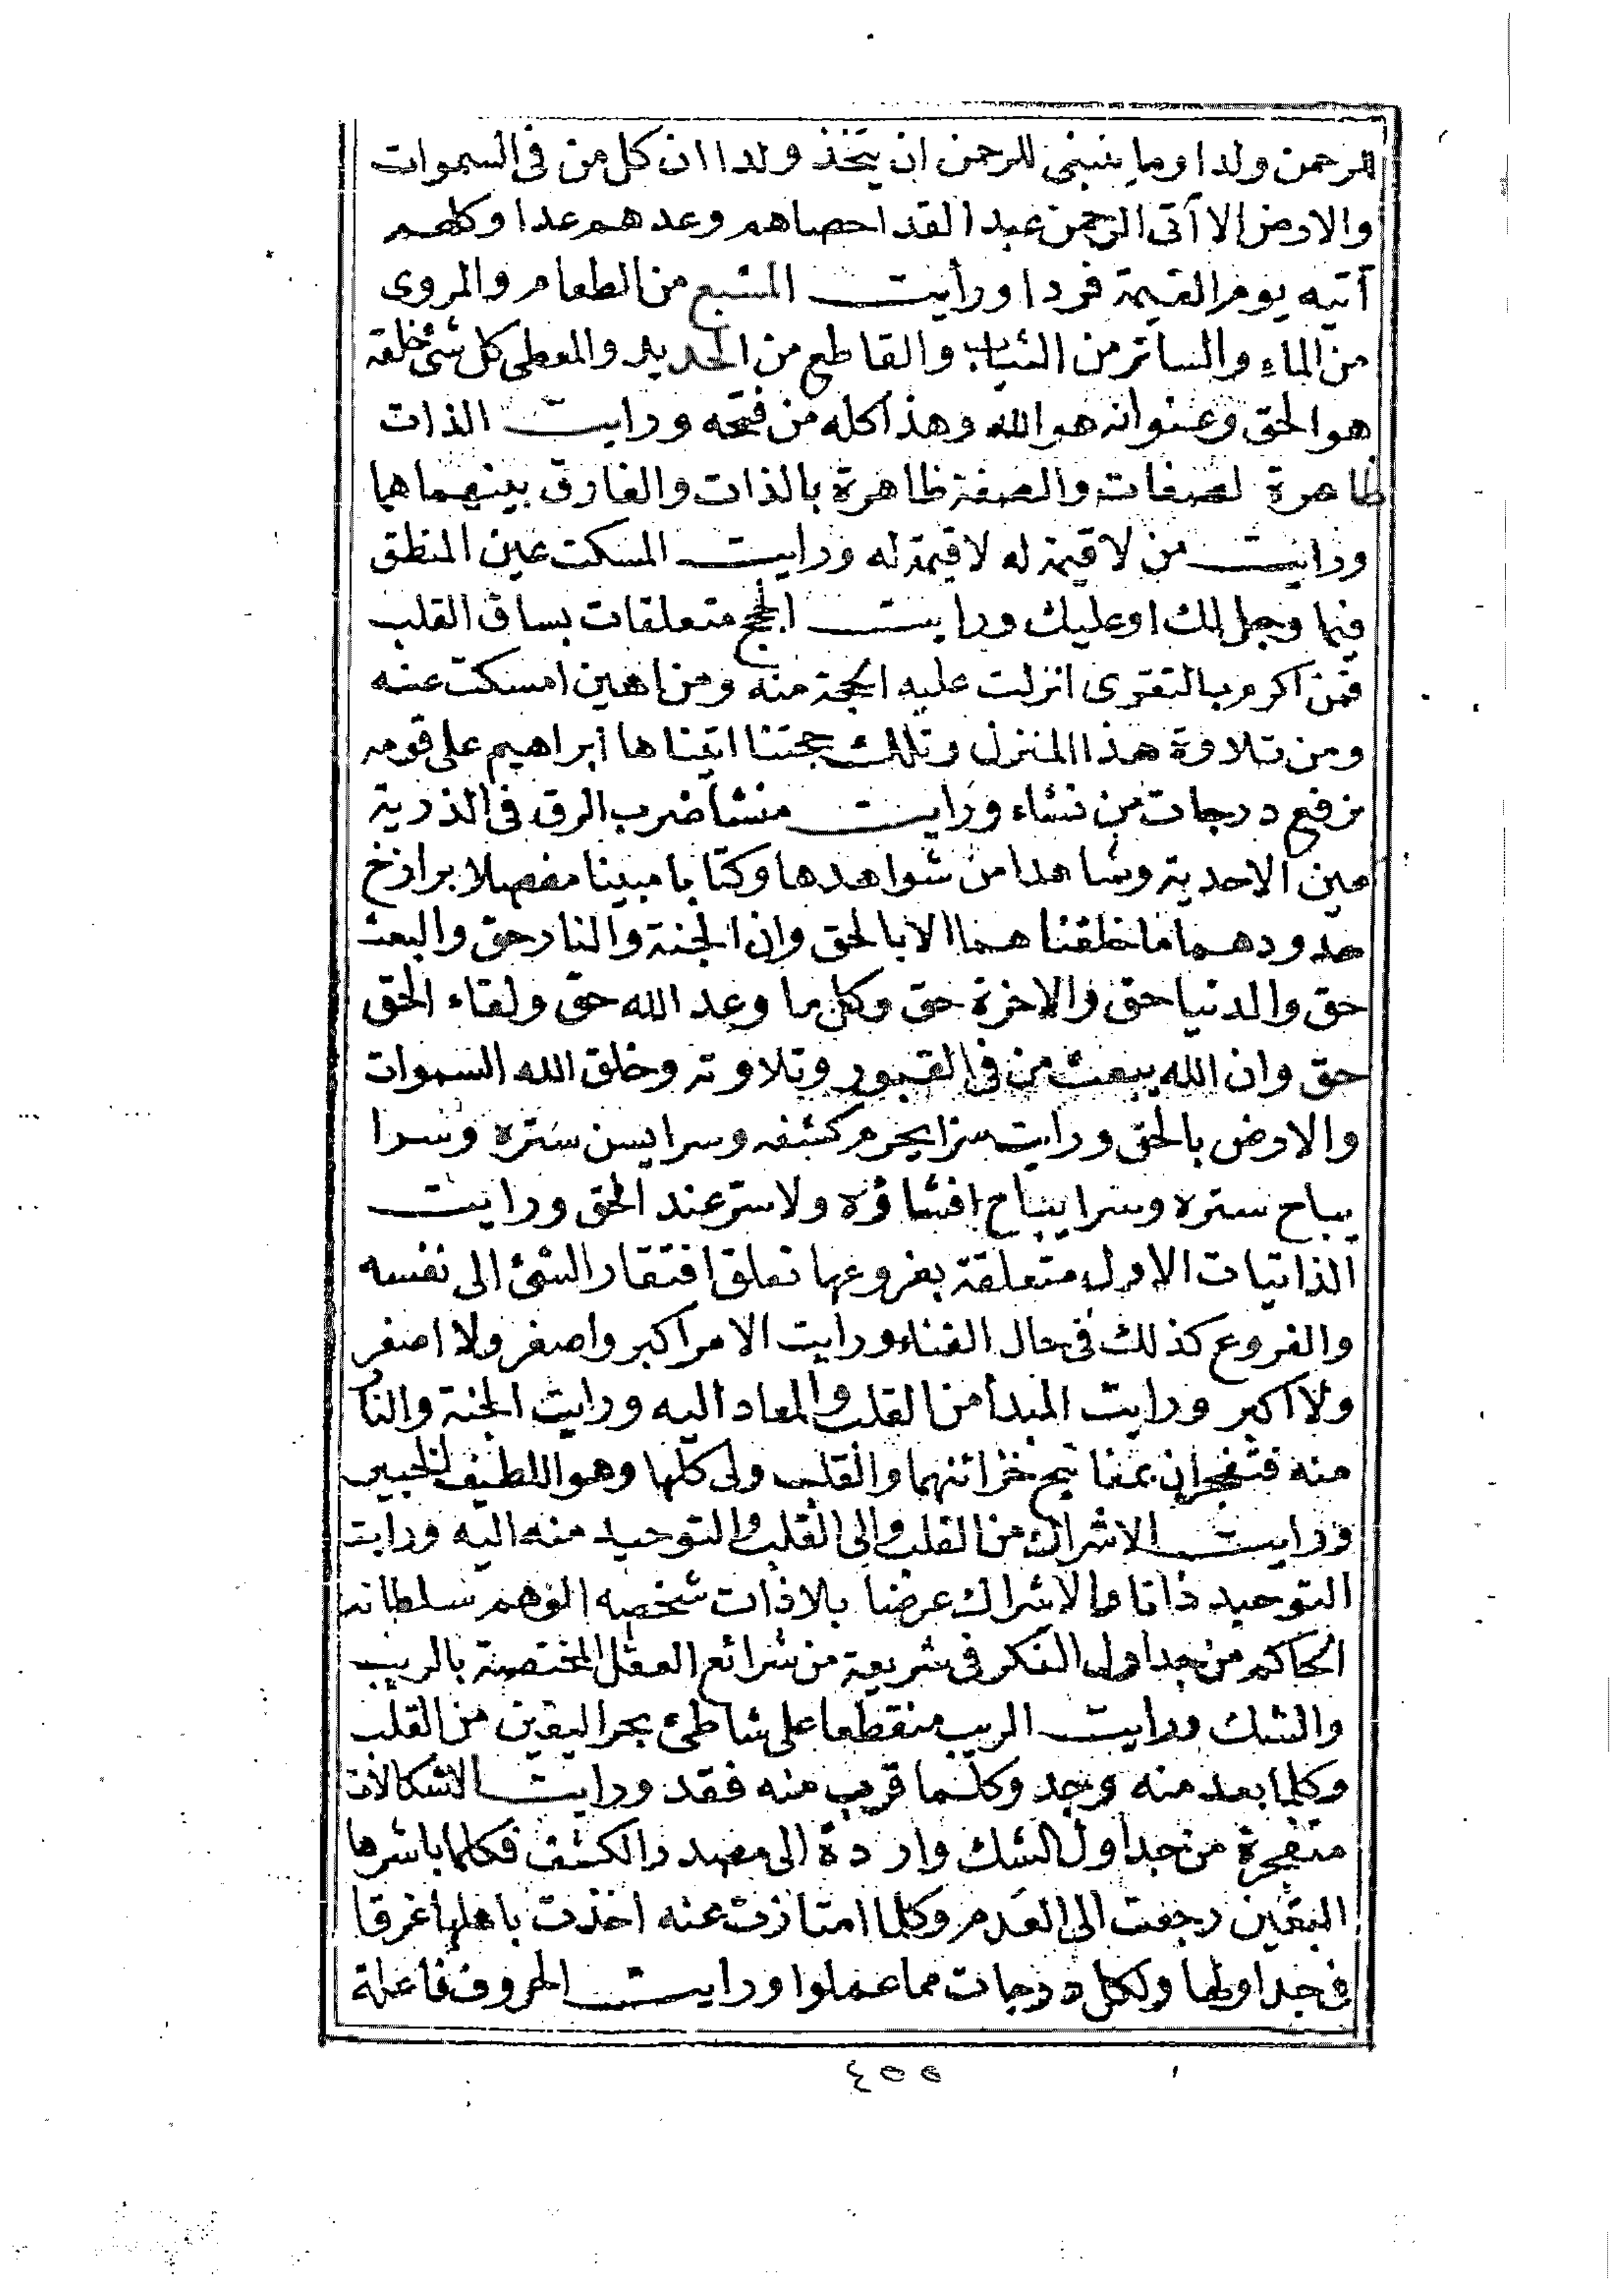 للرحمن ولدا وما ينبغى للرحمن ان يتخذ ولدا ان كل من فى السموات
والارض الا آتى الرحمن عبدا لقد احصاهم وعدهم عدا وكلهم
آتيه يوم القيمة فردا ورأيت المشبع من الطعام والمروى
من الماء والساتر من الثياب والقاطع من الحديد والمعطى كل شئ خلقه
هو الحق وعنوانه هو الله وهذا كله من فتحه ورايت الذات
ظاهرة لصفات والصفة ظاهرة بالذات والفارق بينهما هما
ورايت من لا قيمة له لا قيمة له ورايت المسكت عين المنطق
فيما وجل لك او عليك ورايت الحجج متعلقات بساق القلب
فمن اكرم بالتقوى انزلت عليه الحجة منه ومن اهين امسكت عنه
ومن تلاوة هذا المنزل وتلك حجتنا اتيناها ابراهيم على قومه
نرفع درجات من نشاء ورايت منشأ ضرب الرق فى الذرية
عين الاحدية وشاهدا من شواهدها وكتابا مبينا مفصلا برازخ
حدودهما ما خلقناهما الا بالحق وان الجنة والنار حق والبعث
حق والدنيا حق والاخرة حق وكل ما وعد الله حق ولقاء الحق
حق وان الله يبعث من فى القبور وتلاوته وخلق الله السموات
والارض بالحق ورايت سرا يحرم كشفه وسرا يسن ستره وسرا
يباح ستره وسرا يباح افشاؤه ولا ستر عند الحق ورايت
الذاتيات الاول متعلقة بفروعها تعلق افتقار الشئ الى نفسه
والفروع كذلك فى حال الفناء ورايت الامر اكبر واصغر ولا اصغر
ولا اكبر ورايت المبدأ من القلب والمعاد اليه ورايت الجنة والنار
منه فتنفجران بمفاتيح خزائنهما والقلب ولى كلها وهو اللطيف الخبير
ورايت الاشراك من القلب والى القلب والتوحيد منه اليه ورايت
التوحيد ذاتا والاشراك عرضا بلا ذات شخصه الوهم سلطانه
الحاكم من جداول الفكر فى شريعة من شرائع العقل المختصة بالريب
والشك ورايت الريب منقطعا على شاطئ بحر اليقين من القلب
وكلما بعد منه وجد وكلما قرب منه فقد ورايت الاشكالات
متفجرة من جداول الشك واردة الى مصدر الكشف فكلما باشرها
اليقين رجعت الى العدم وكلما امتازت عنه اخذت باهلها غرقا
فى جداولها ولكل درجات مما عملوا ورايت الحروف فاعلة
٤٥٥